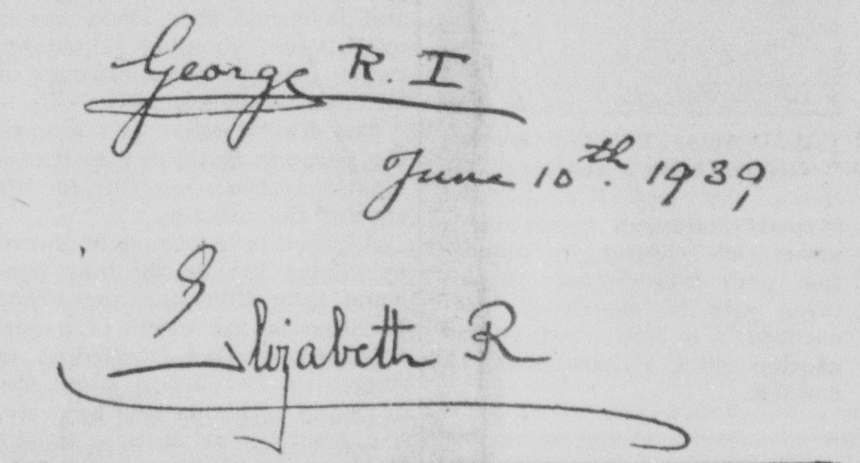 George R. I
June 10th. 1939,
Elizabeth R